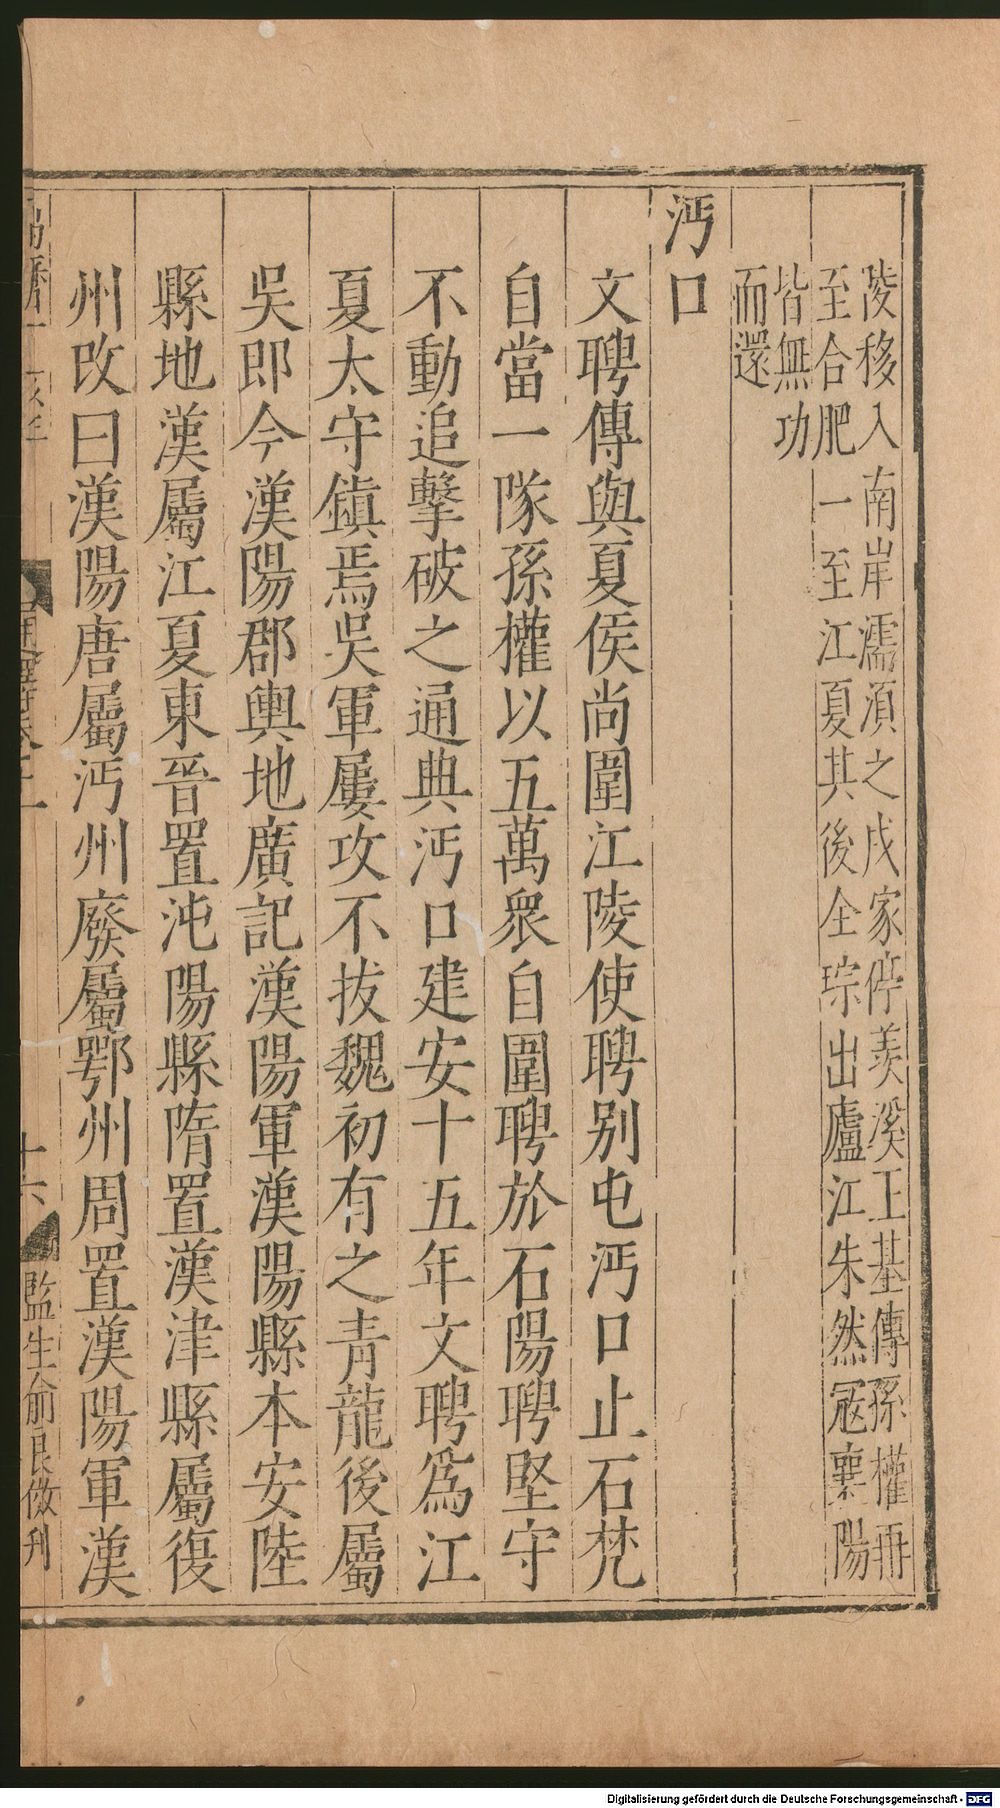 陵移入南岸濡湏之戍家停羡溪王基傳孫權再
至合肥一至江夏其後全琮出廬江朱然冦襄陽
皆無功
而還
沔口
文聘傳與夏侯尚圍江陵使聘别屯沔口止石梵
自當一隊孫權以五萬衆自圍聘於石陽聘堅守
不動追擊破之通典沔口建安十五年文聘爲江
夏太守鎮焉吳軍屢攻不拔魏初有之青龍後屬
吳即今漢陽郡輿地廣記漢陽軍漢陽縣本安陸
縣地漢屬江夏東晉置沌陽縣隋置漢津縣屬復
州改曰漢陽唐屬沔州廢屬鄂州周置漢陽軍漢
十六
監生俞良倣刊
Digitalisierung gefördert durch die Deutsche Forschungsgemeinschaft - DFG